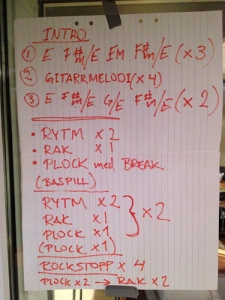 INTRO
① E F#m/E Em F#m/E (x3)
② GITARRMELODI (x4)
③ E F#m/E G/E F#m/E (x2)
• RYTM x2
• RAK x1
• PLOCK med BREAK
(BASPILL)
RYTM x2
RAK x1
PLOCK x1
(PLOCK x1)
} x2
ROCKSTOPP x 4
PLOCK x2 → RAK x2